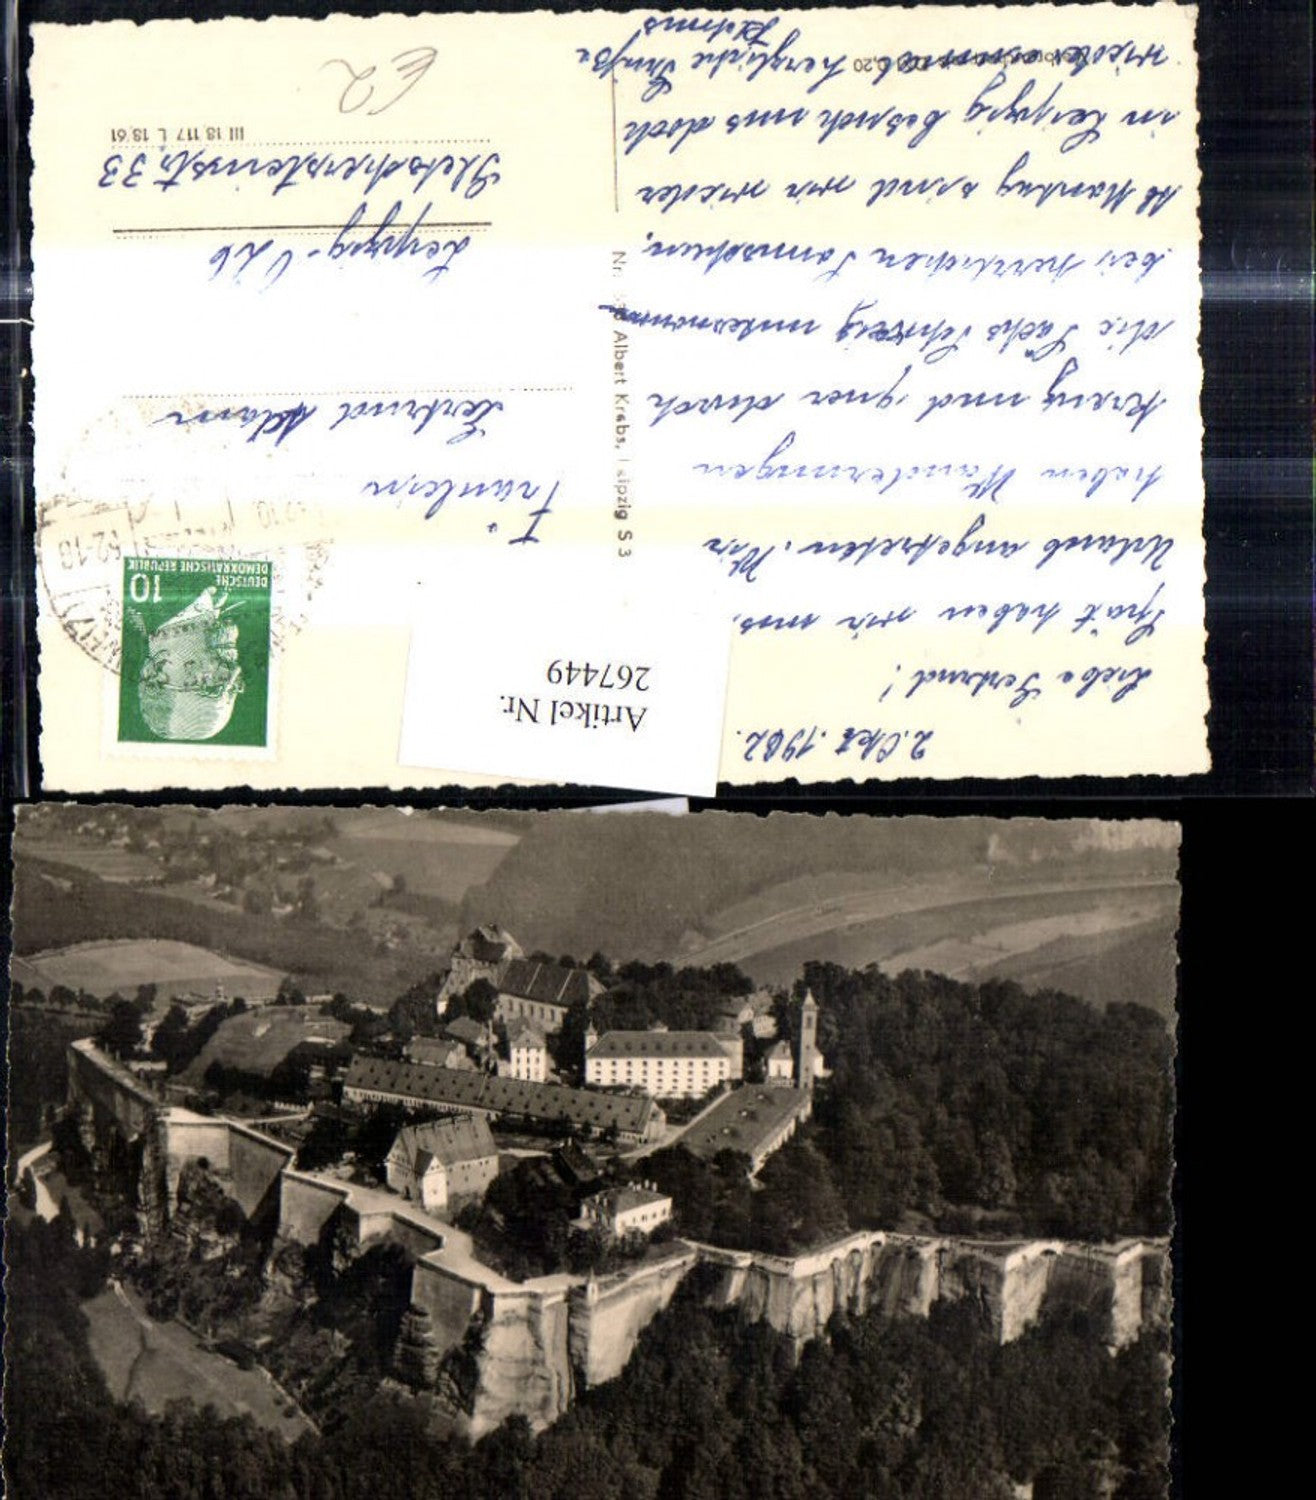 2. Okt. 1962.
Liebe Gertrud!
Spät haben wir uns.
Urlaub angetreten. Wir
haben Wanderungen
kreuz und quer durch
die Sächs Schweiz unternommen
bei herrlichen Sonnenschein,
Ab Montag sind wir wieder
in Leipzig Besuch uns doch
wieder einmal herzliche Grüße
Artikel Nr.
267449
Nr. Albert Krebs, Leipzig S 3
DEUTSCHE
DEMOKRATISCHE REPUBLIK
10
Fräulein
Gertrud Adam
Leipzig
33
III 18 117 L 18/61
€2